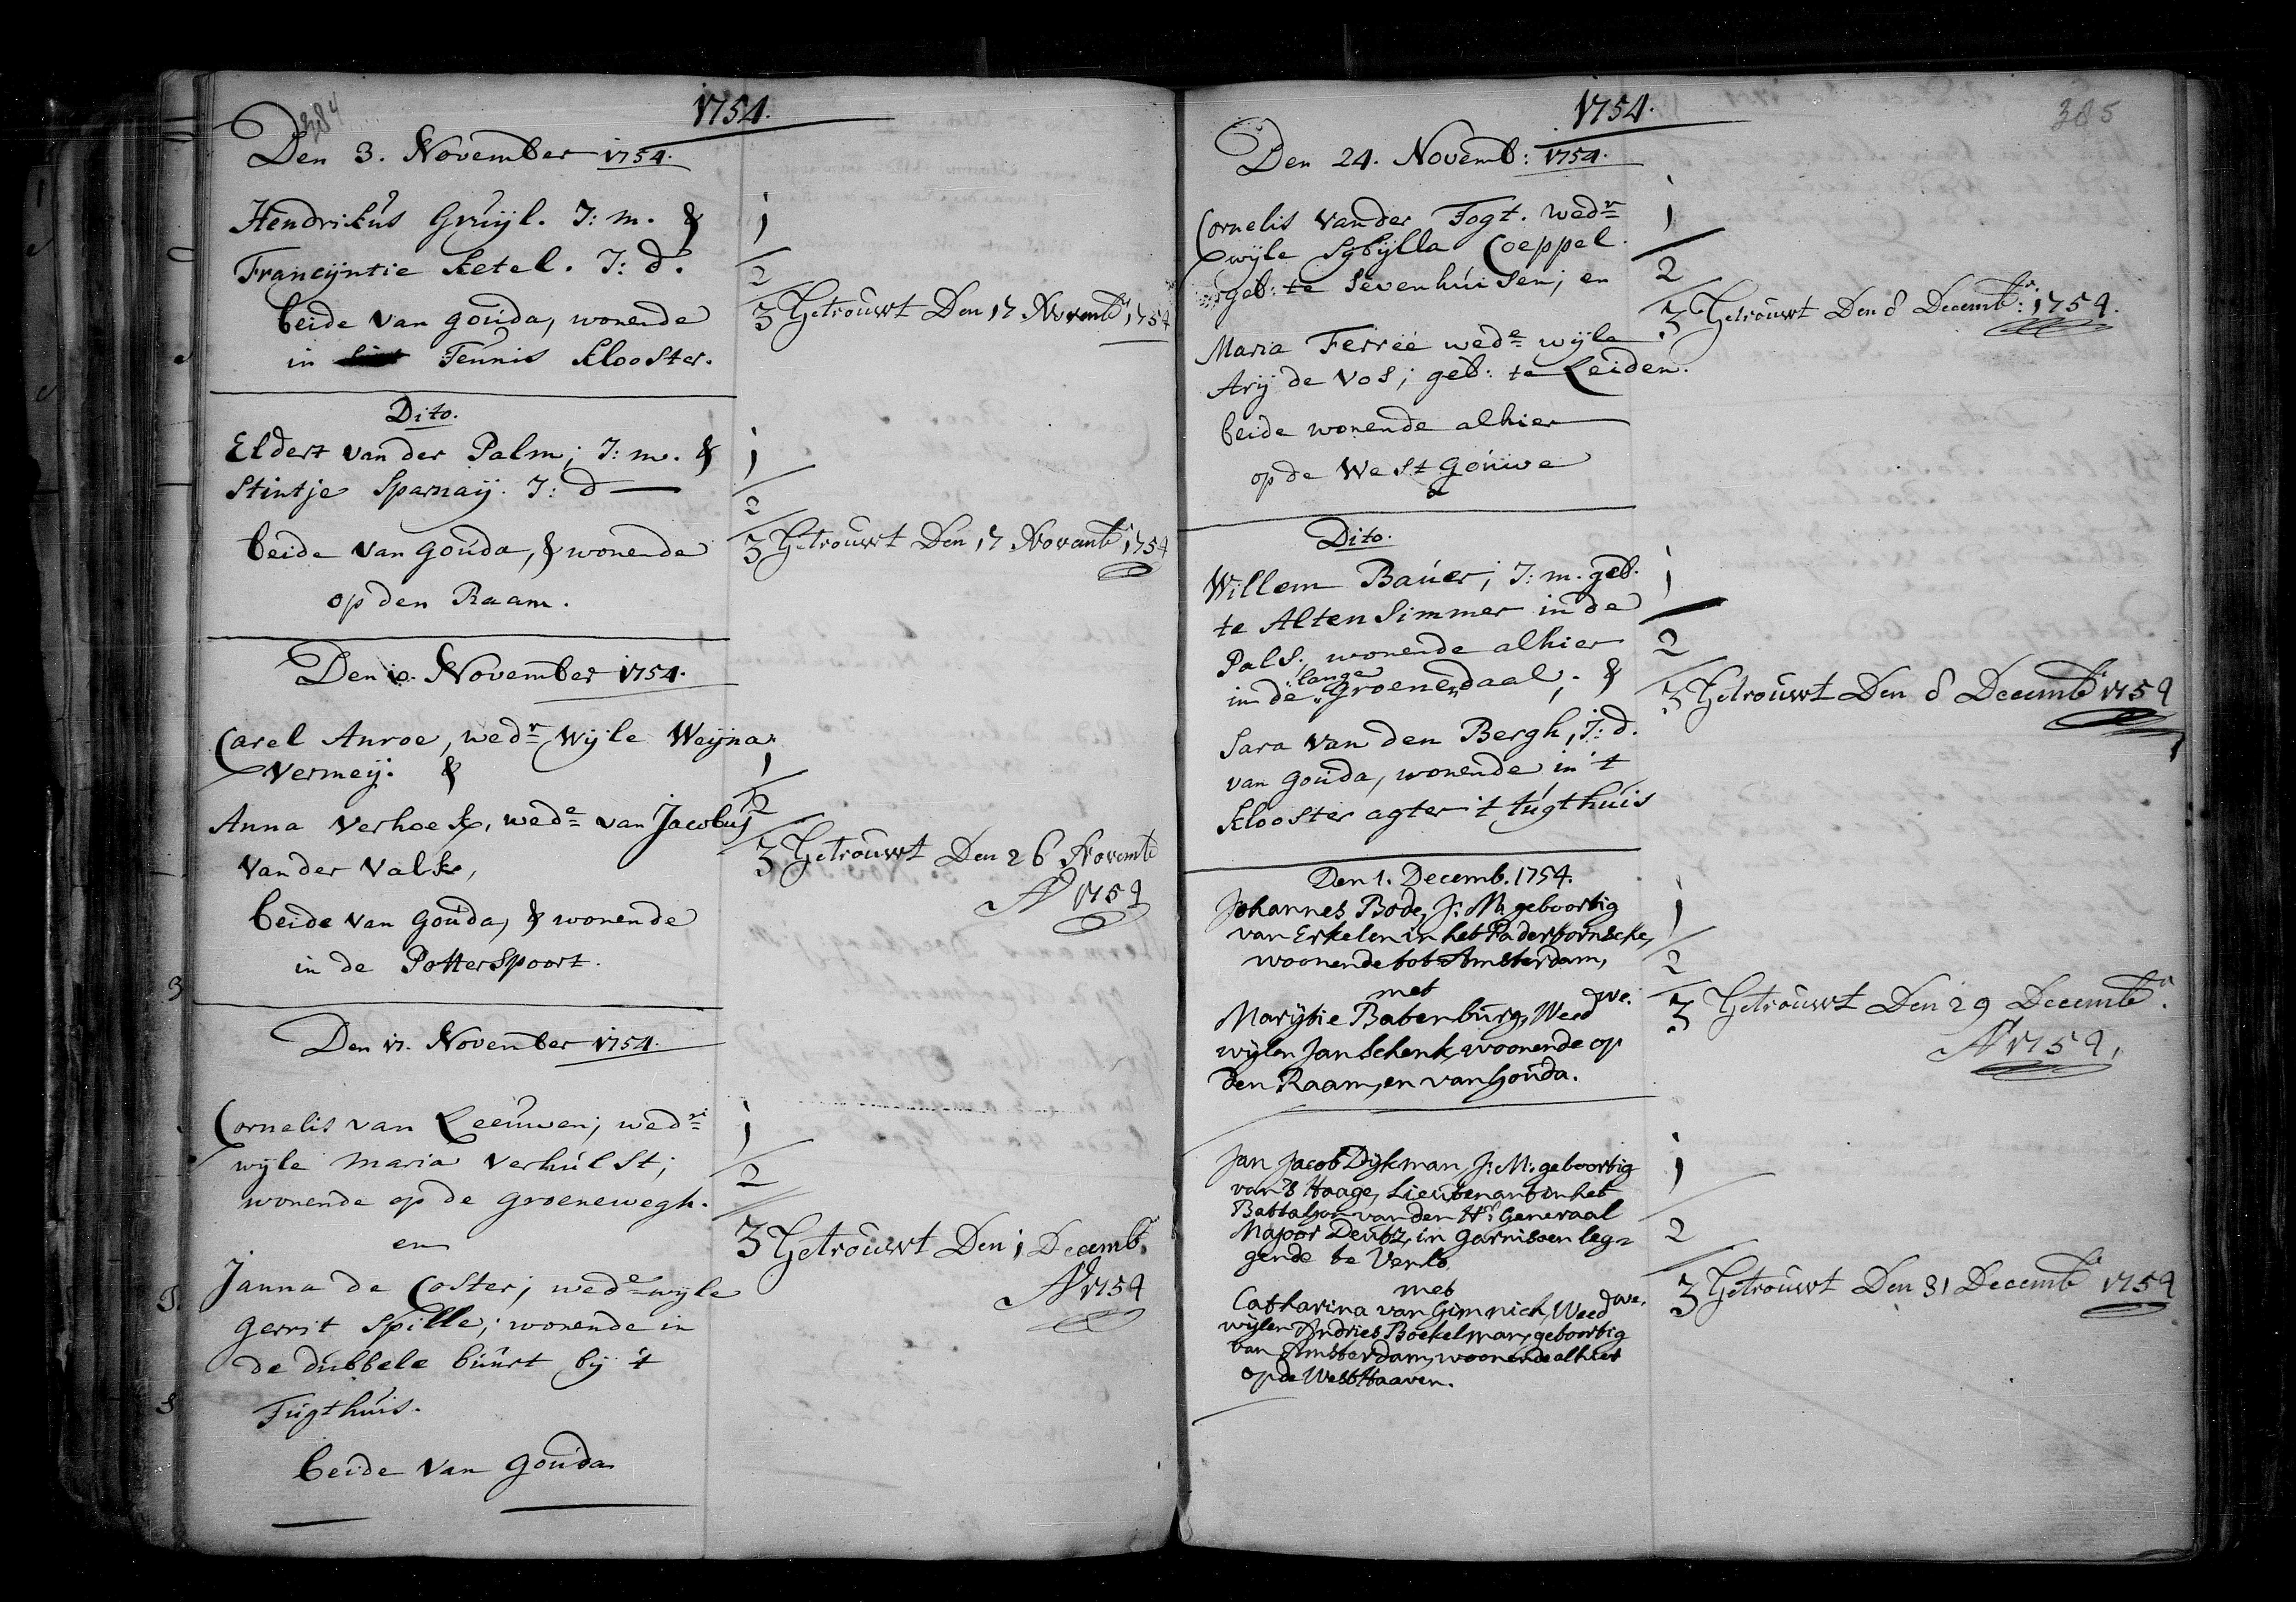 384
1754.
Den 3. November 1754.
Hendrikus Gruijl. J: m. &
Francijntie Ketel. J: d.
beide van gouda, wonende
in Teunis Klooster.
1
2
3 Getrouwt Den 17 Novembr 1754
Dito.
Eldert van der Palm; J: m. &
Stintje Sparnaij. J: d
beide van gouda, & wonende
op den Raam.
1
2
3 Getrouwt Den 17 Novembr 1754
Den 10. November 1754.
Carel Anroe, wedr wyle Weijna
Vermeij. &
Anna Verhoek, wede van Jacobus
van der Valk,
beide van gouda, & wonende
in de Potterspoort.
1
2
3 Getrouwt Den 26 Novembr
Ao 1754
Den 17. November 1754.
Cornelis van Leeuwen; wedr
wyle Maria Verhulst;
wonende op de groenewegh.
en
Janna de Coster; wede wyle
gerrit Spille; wonende in
de dubbele buurt by 't
Tugthuis.
beide van gouda
1
2
3 Getrouwt Den 1 Decemb.
Ao 1754
385
1754.
Den 24. Novemb: 1754.
Cornelis van der Fogt. wedr
wyle Sybylla Coeppel.
geb: te Sevenhuisen; en
Maria Ferrée wede wyle
Arij de Vos; geb: te Leiden.
beide wonende alhier
op de West gouwe
1
2
3 Getrouwt Den 8 Decembr: 1754.
Dito.
Willem Bauer; J: m. geb.
te Alten Simmer in de
Pals; wonende alhier
in de lange Groenendaal; &
Sara van den Bergh, J: d.
van gouda, wonende in 't
Klooster agter 't tugthuis
1
2
3 Getrouwt Den 8 Decembr 1754
Den 1. Decemb. 1754.
Johannes Bode, J: M. geboortig
van Erkelen in het Paderbornsche,
woonende tot Amsterdam,
met
Marijtie Batenburg, Weedwe.
wijlen Jan Schenk, woonende op
den Raam, en van Gouda.
1
2
3 Getrouwt Den 29 Decembr.
Ao 1754,
Jan Jacob Dijkman, J: M: geboortig
van 's Haage, Lieutenant in het
Battaljon van den Hr: Generaal
Majoor Deutz, in garnisoen leg=
gende te Venlo
met
Catharina van Gimnich, Weedwe.
wijlen Andries Boekelman, geboortig
van Amsterdam, woonende alhier
op de West Haaven.
1
2
3 Getrouwt Den 31 Decembr 1754